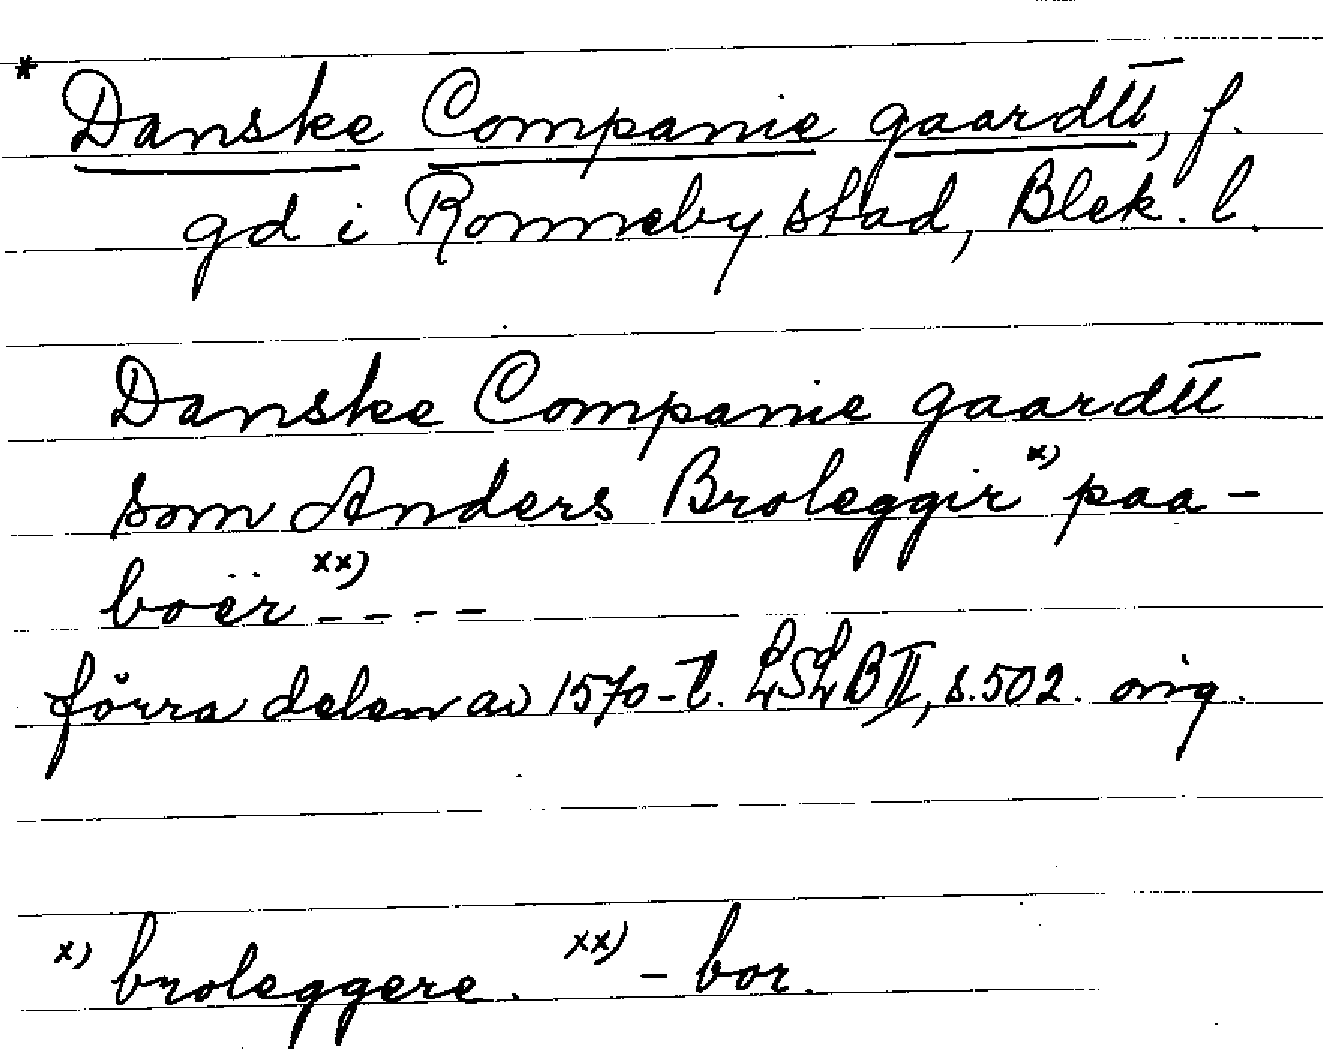 * Danske Companie gaardtt, f.
gd i Ronneby stad, Blek. l.
Danske Companie gaardtt
som Anders Broleggir x) paa-
boër xx) - - - -
förra delen av 1570-t. LSLB II, s. 502. orig.
x) broleggere. xx) - bor.